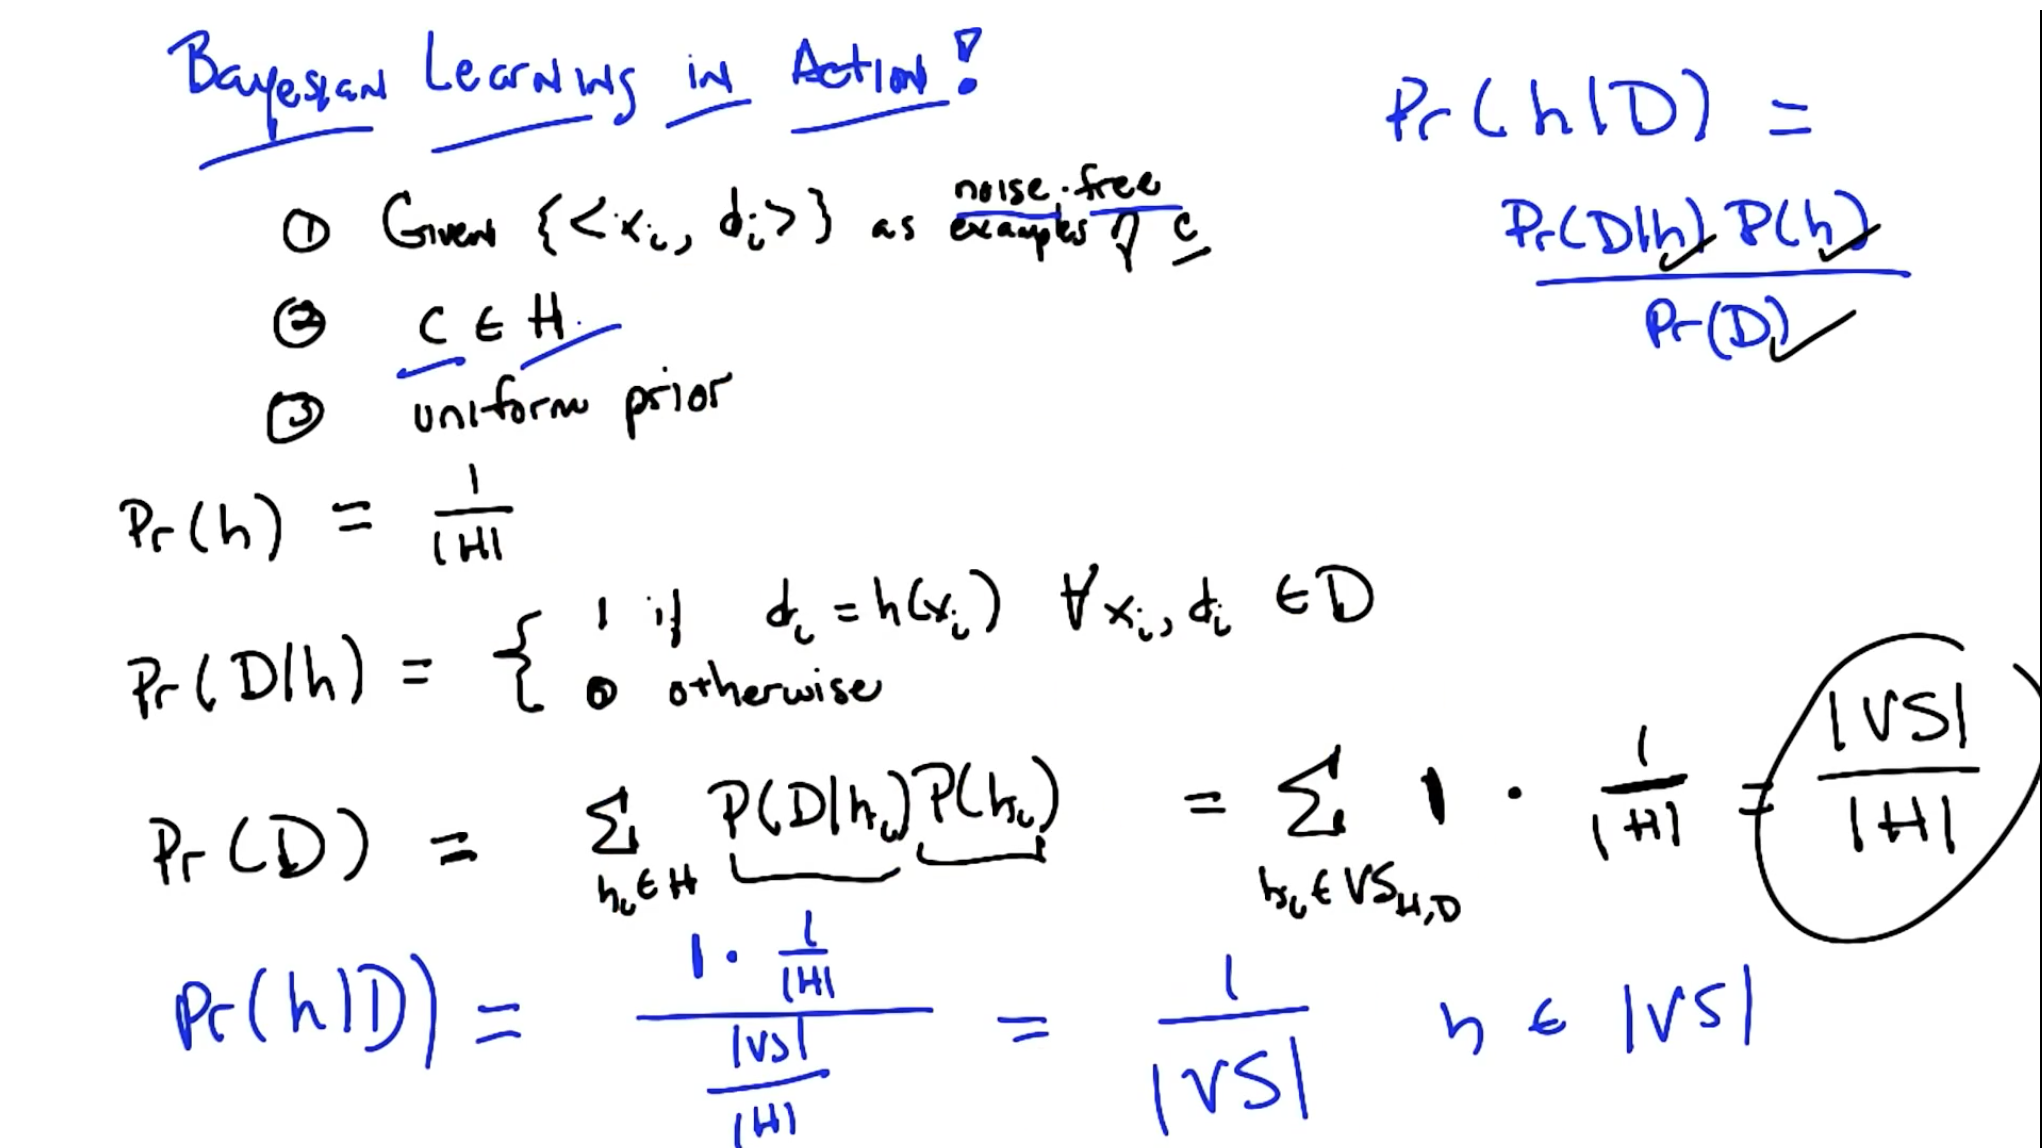 Bayesian Learning in Action!
Pr(h|D) =
Pr(D|h) P(h)
Pr(D)
① Given {<xᵢ, dᵢ>} as noise-free examples of c
② C ∈ H
③ uniform prior
Pr(h) = 1/|H|
Pr(D|h) = { 1 if dᵢ = h(xᵢ) ∀ xᵢ, dᵢ ∈ D
0 otherwise
Pr(D) = Σ_{hᵢ∈H} P(D|hᵢ) P(hᵢ) = Σ_{hᵢ∈VS_{H,D}} 1 · 1/|H| = |VS|/|H|
Pr(h|D) = (1 · 1/|H|)/(|VS|/|H|) = 1/|VS| h ∈ |VS|